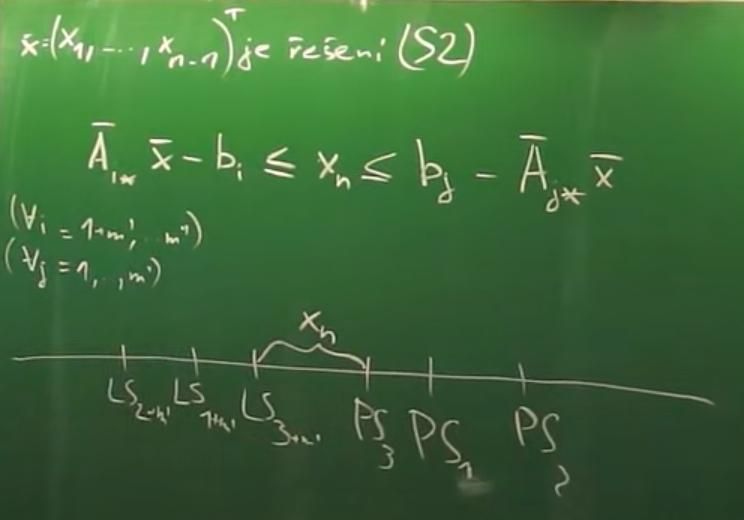 x̄=(x₁,...,xₙ₋₁)ᵀ je řešení (S2)
Āᵢ⁎ x̄ - bᵢ ≤ xₙ ≤ bⱼ - Āⱼ⁎ x̄
(∀i = 1+m',...m'')
(∀j = 1,..,m')
xₙ
LS₂₊ₘ' LS₁₊ₘ' LS₃₊ₘ' PS₃ PS₁ PS₂